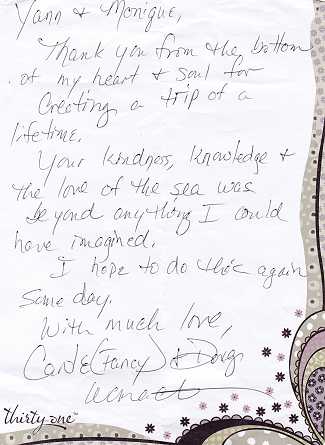 Yann & Monique,
Thank you from the bottom
of my heart & soul for
Creating a trip of a
lifetime.
Your kindness, knowledge &
the love of the sea was
beyond anything I could
have imagined.
I hope to do this again
some day.
With much love,
Carole (Fancy) & Doug
thirty-one